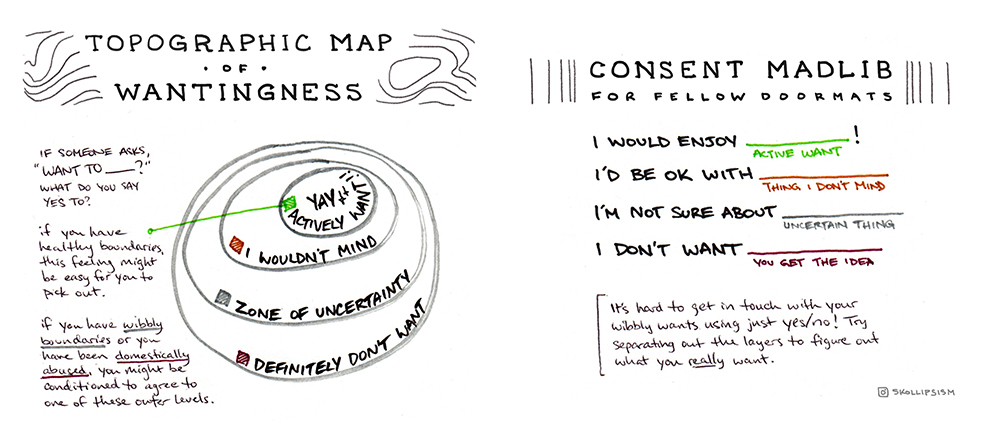 TOPOGRAPHIC MAP
• OF •
WANTINGNESS
IF SOMEONE ASKS,
"WANT TO ___?"
WHAT DO YOU SAY
YES TO?
if you have
healthy boundaries,
this feeling might
be easy for you to
pick out.
if you have wibbly
boundaries or you
have been domestically
abused, you might be
conditioned to agree to
one of these outer levels.
YAY!!!
ACTIVELY WANT!
I WOULDN'T MIND
ZONE OF UNCERTAINTY
DEFINITELY DON'T WANT
CONSENT MADLIB
FOR FELLOW DOORMATS
I WOULD ENJOY ________!
ACTIVE WANT
I'D BE OK WITH ________
THING I DON'T MIND
I'M NOT SURE ABOUT ________
UNCERTAIN THING
I DON'T WANT ________
YOU GET THE IDEA
It's hard to get in touch with your
wibbly wants using just yes/no! Try
separating out the layers to figure out
what you really want.
SKOLLIPSISM